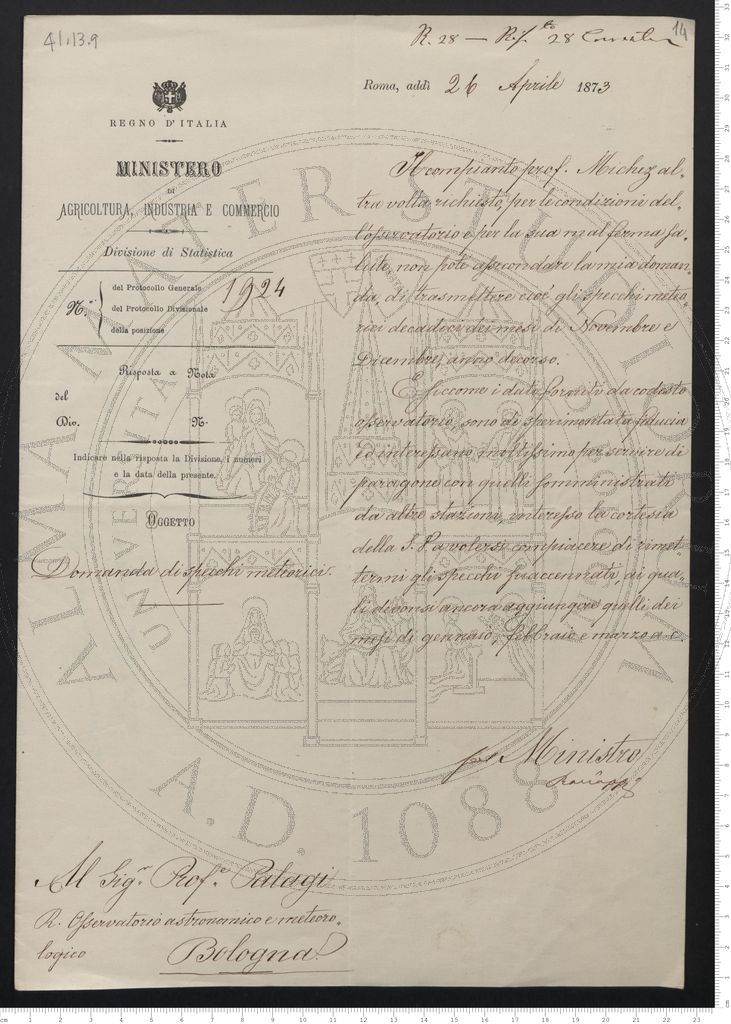 41.13.9
R. 28 — Rispta 28 Corrente
14
Roma, addì 26 Aprile 1873
REGNO D'ITALIA
MINISTERO
DI
AGRICOLTURA, INDUSTRIA E COMMERCIO
Divisione di Statistica
N.°
del Protocollo Generale 1924
del Protocollo Divisionale
della posizione
Risposta a Nota
del
Div. N.
Indicare nella risposta la Divisione, i numeri
e la data della presente.
OGGETTO
Domanda di specchi meteorici.
Il compianto prof. Michez al-
tra volta richiesto, per le condizioni del-
l'osservatorio e per la sua mal ferma sa-
lute, non potè assecondare la mia doman-
da, di trasmettere cioè gli specchi meteo-
rici decadici dei mesi di Novembre e
Dicembre, anno decorso.
E siccome i dati forniti da codesto
osservatorio, sono di sperimentata fiducia
ed interessano moltissimo per servire di
paragone con quelli somministrati
da altre stazioni, interesso la cortesia
della S. V. a volersi compiacere di rimet-
termi gli specchi suaccennati, ai qua-
li devonsi ancora aggiungere quelli dei
mesi di gennaio, febbraio e marzo a.c.
pel Ministro
Al Sigr. Profe. Palagi
R. Osservatorio astronomico e meteoro-
logico
Bologna
ALMA MATER STUDIORUM
A.D. 1088